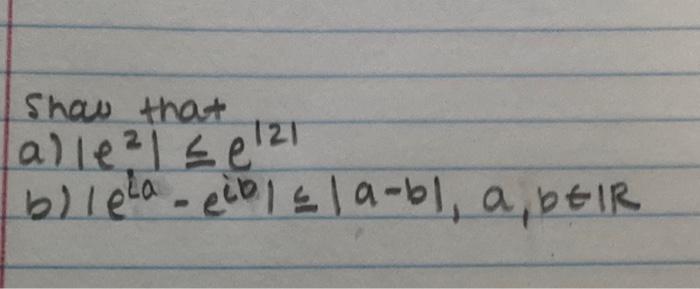 Show that
a) |e^z| ≤ e^|z|
b) |e^ia - e^ib| ≤ |a-b|, a,b∈ℝ